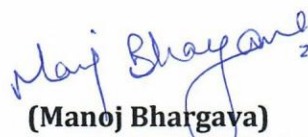 Manoj Bhargava
(Manoj Bhargava)